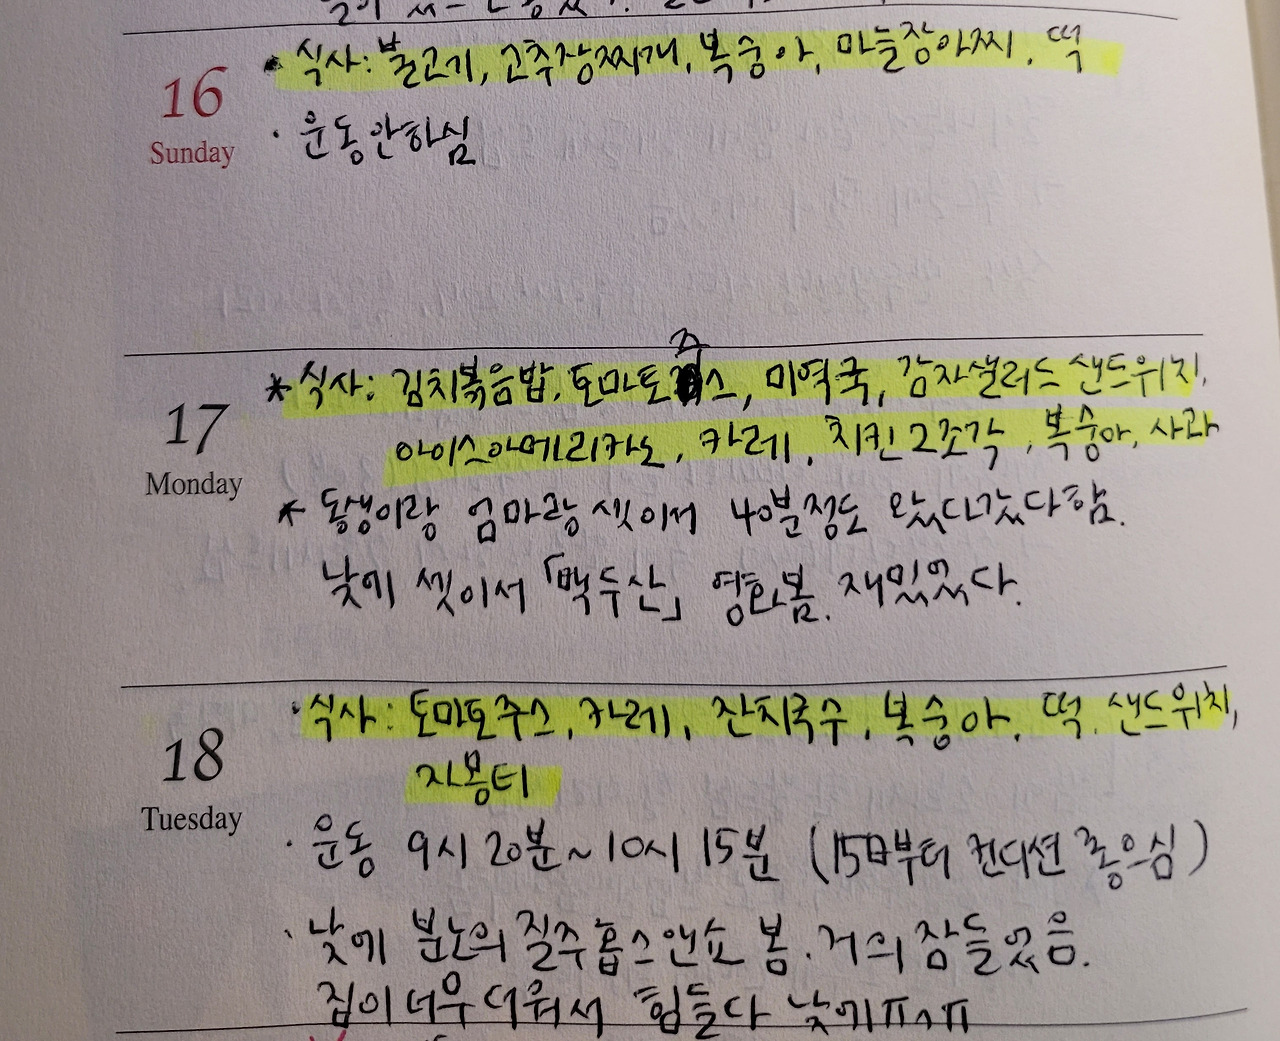 16
Sunday
· 식사: 불고기, 고추장찌개, 복숭아, 마늘장아찌, 떡
· 운동안하심
17
Monday
* 식사: 김치볶음밥, 토마토주스, 미역국, 감자샐러드 샌드위치,
아이스아메리카노, 카레, 치킨2조각, 복숭아, 사과
* 동생이랑 엄마랑 셋이서 40분정도 왔다갔다함.
낮에 셋이서 「백두산」 영화봄. 재밌었다.
18
Tuesday
· 식사: 토마토주스, 카레, 잔치국수, 복숭아, 떡, 샌드위치,
자몽티
· 운동 9시 20분~10시 15분 (15日부터 컨디션 좋으심)
· 낮에 분노의 질주홉스앤쇼 봄. 거의 잠들었음.
집이 너무 더워서 힘들다 낮에ㅠㅅㅠ